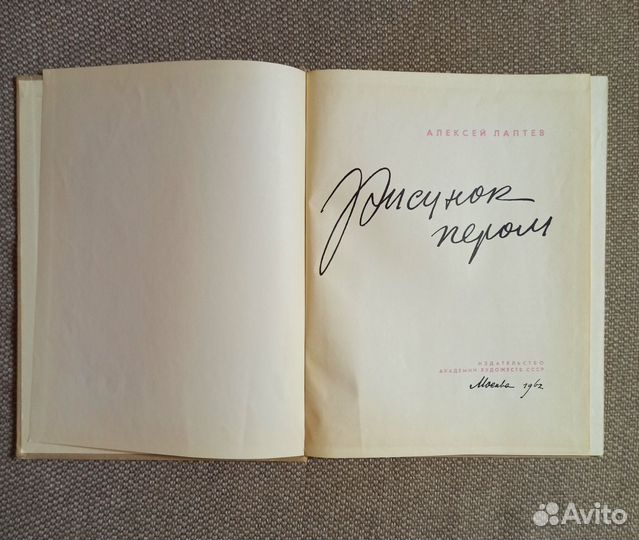 АЛЕКСЕЙ ЛАПТЕВ
Рисунок
пером
ИЗДАТЕЛЬСТВО
АКАДЕМИИ ХУДОЖЕСТВ СССР
Москва 1962
Avito